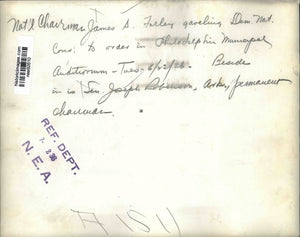 Nat'l Chairman James A. Farley gaveling Dem Nat.
Conv. to order in Philadelphia Municipal
Auditorium - Tues, 6/23/36. Beside
him is Sen Joseph Robinson, Ark., permanent
chairman.
REF. DEPT.
N. E. A.